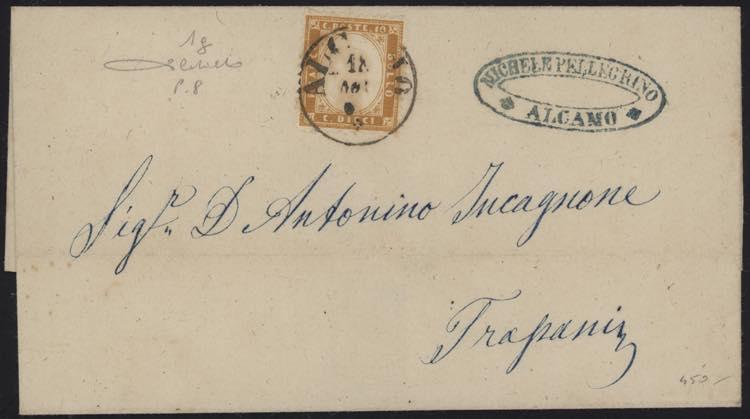 C. POSTE 10
BOLLO
C. DIECI
ALCAMO
18
MICHELE PELLEGRINO
ALCAMO
Sigr. D Antonino Incagnone
Trapani
1g
P. 8
450.-